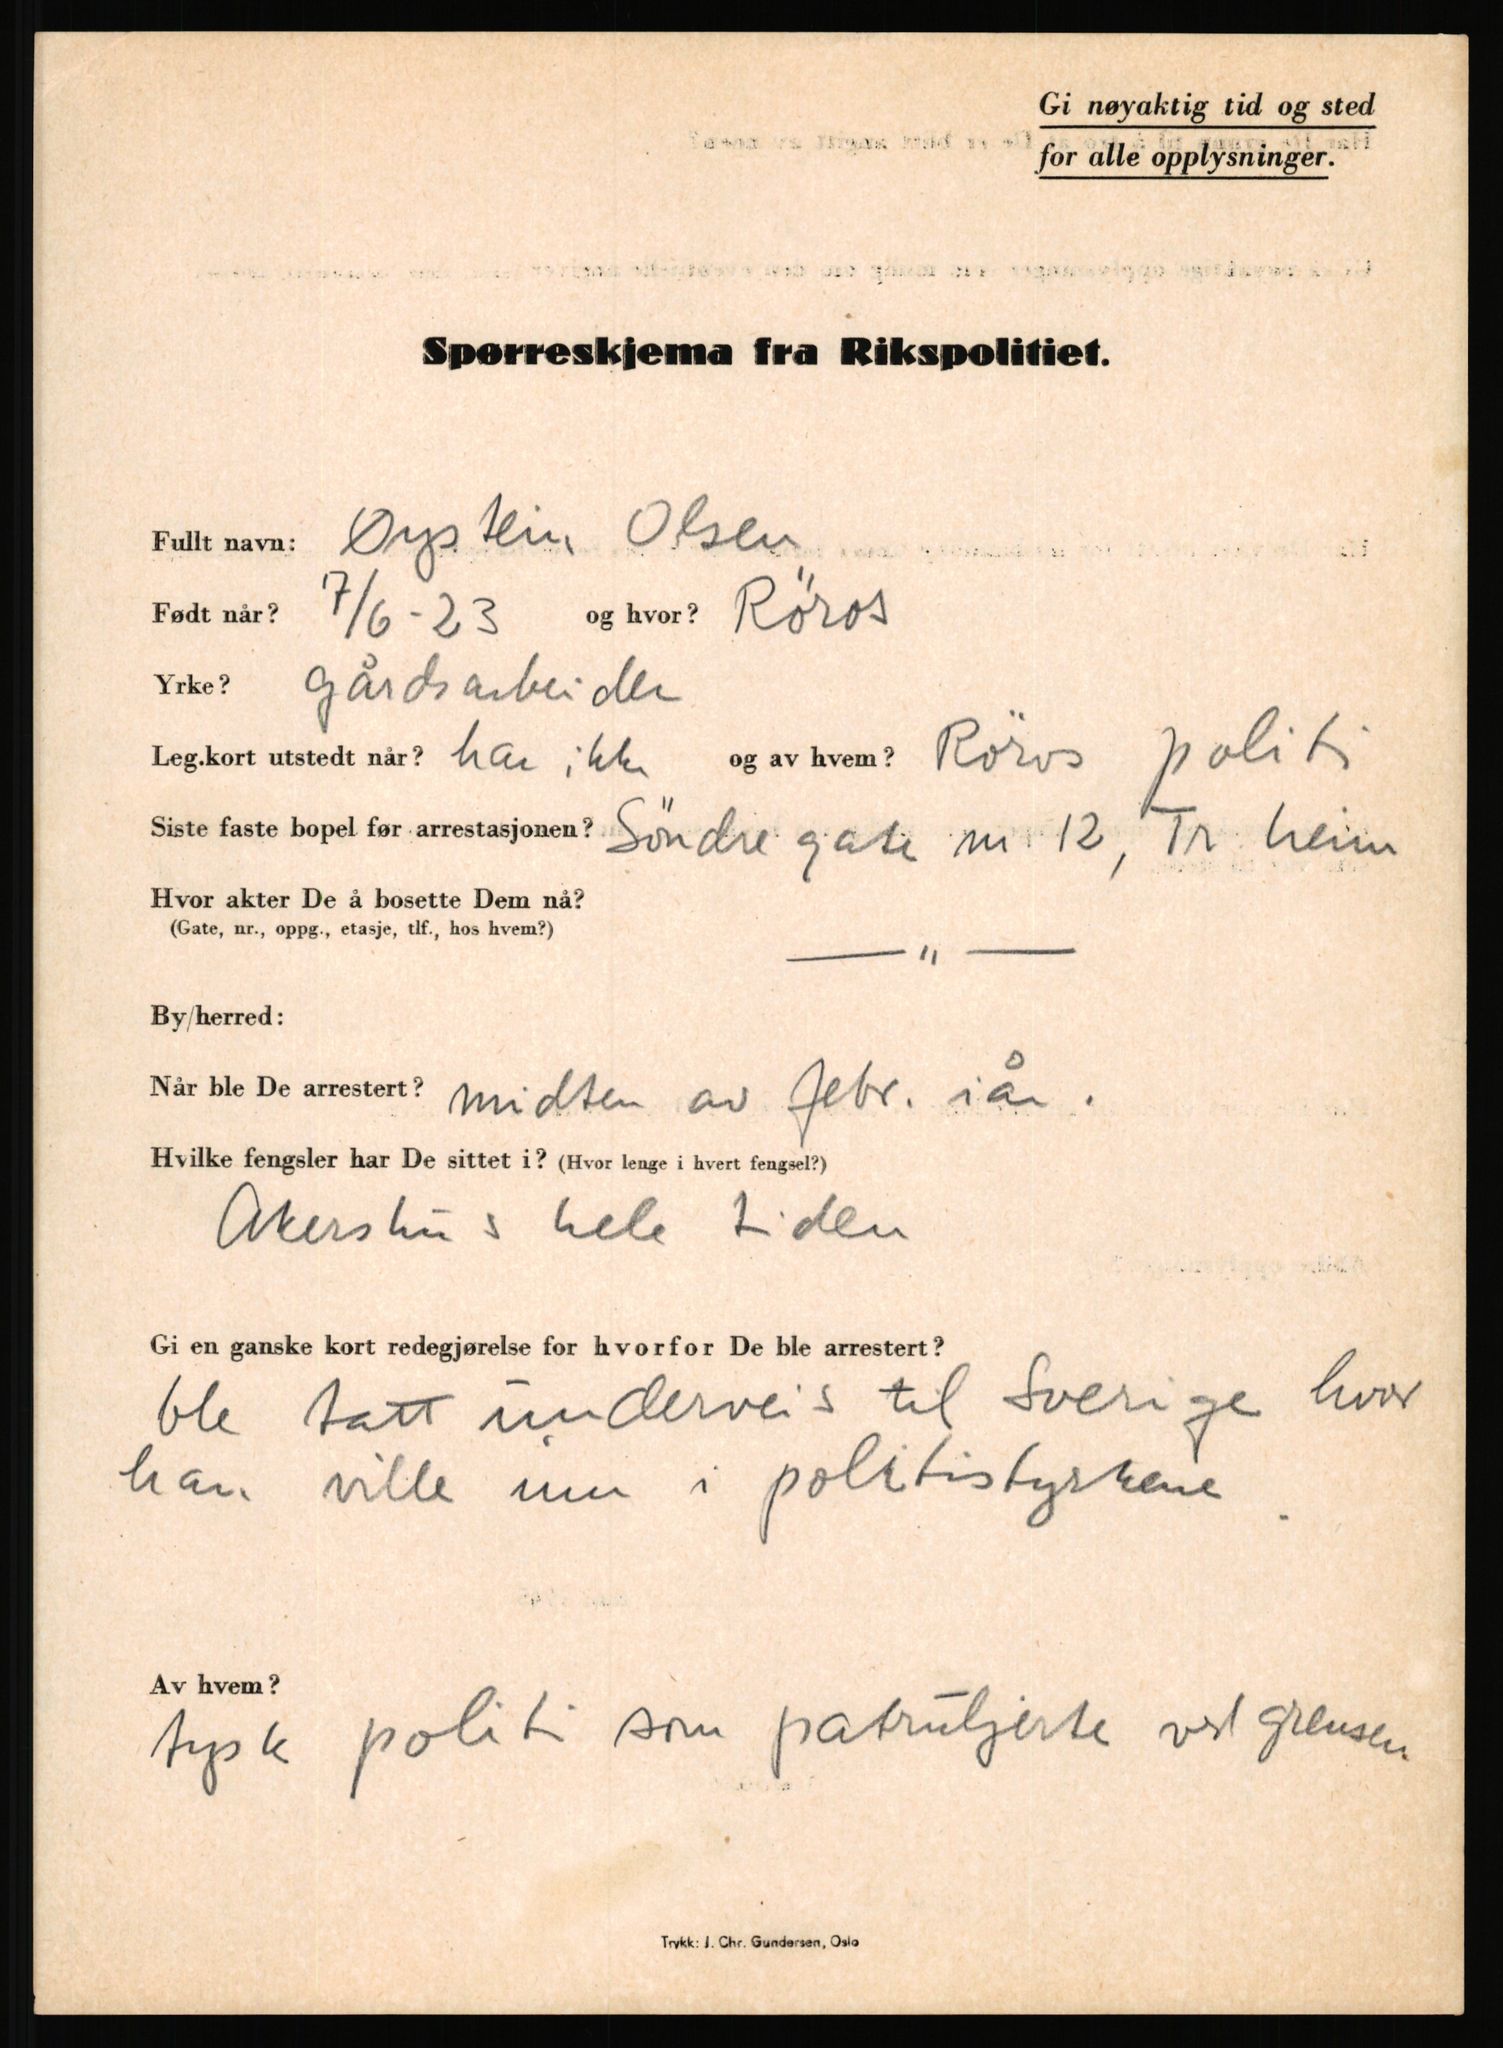 Gi nøyaktig tid og sted
for alle opplysninger.
Spørreskjema fra Rikspolitiet.
Fullt navn: Øystein Olsen
Født når? 7/6-23 og hvor? Röros
Yrke? gårdsarbeider
Leg.kort utstedt når? har ikke og av hvem? Röros politi
Siste faste bopel før arrestasjonen? Söndre gate nr 12, Tr heim
Hvor akter De å bosette Dem nå?
(Gate, nr., oppg., etasje, tlf., hos hvem?)
— " —
By/herred:
Når ble De arrestert? midten av febr. i år.
Hvilke fengsler har De sittet i? (Hvor lenge i hvert fengsel?)
Akershus hele tiden
Gi en ganske kort redegjørelse for hvorfor De ble arrestert?
ble tatt underveis til Sverige hvor
han ville inn i politistyrkene.
Av hvem?
tysk politi som patruljerte ved grensen.
Trykk: J. Chr. Gundersen, Oslo